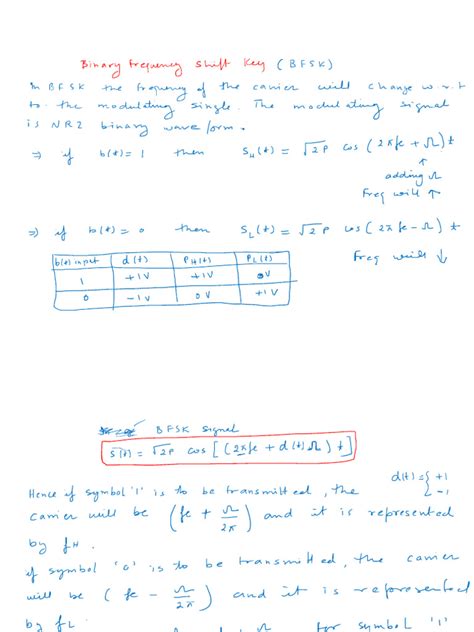 Binary frequency shift key (BFSK)
In BFSK the frequency of the carrier will change w.r.t
to the modulating single. The modulating signal
is NRZ binary waveform.
⇒ if b(t)=1 then S_H(t) = √2P cos (2πfc + Ω)t
↑
adding Ω
Freq will ↑
⇒ if b(t)=0 then S_L(t) = √2P cos (2πfc - Ω)t
Freq will ↓
b(t) input d(t) P_H(t) P_L(t)
1 +1V +1V 0V
0 -1V 0V +1V
BFSK signal
S(t) = √2P cos [(2πfc + d(t)Ω)t]
d(t) = { +1
-1
Hence if symbol '1' is to be transmitted, the
carrier will be (fc + Ω/2π) and it is represented
by fH.
if symbol '0' is to be transmitted, the carrier
will be (fc - Ω/2π) and it is represented
by fL.
for symbol '1'